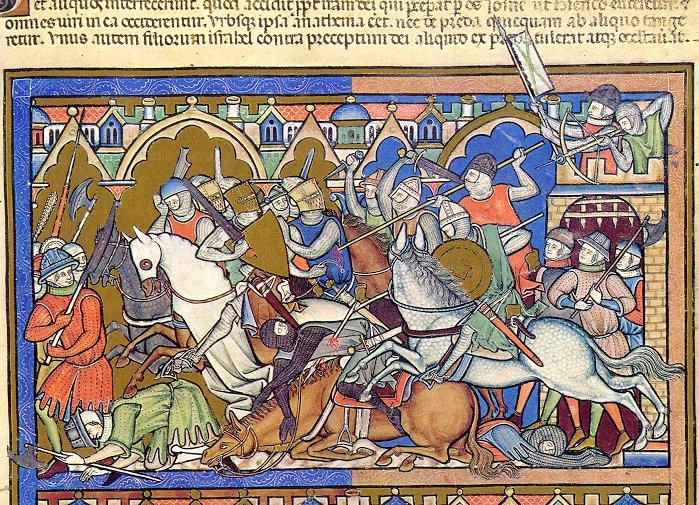 et aliquos interfecerunt. quod accidit dei qui Iosue ut
omnes uiri in ea occiderentur. Vrbsq; ipsa anathema eet. nec de preda quicquam ab aliquo tange
retur. Vnus autem filiorum israhel contra preceptum dei aliquid ex preda tulerat atq;